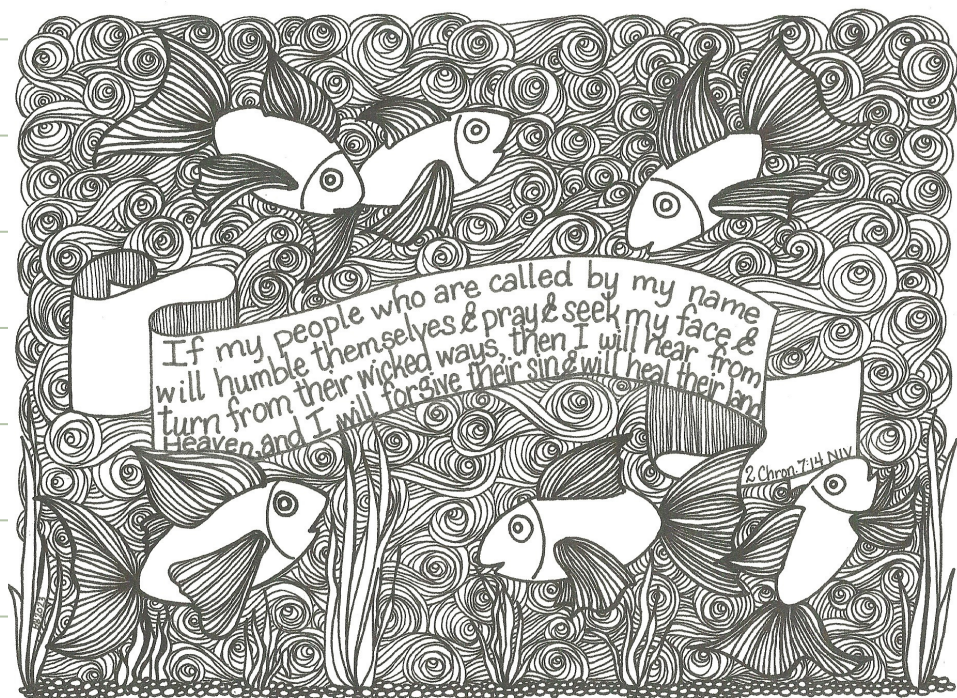 If my people who are called by my name
will humble themselves & pray & seek my face &
turn from their wicked ways, then I will hear from
Heaven, and I will forgive their sin & will heal their land
2 Chron. 7:14 NIV